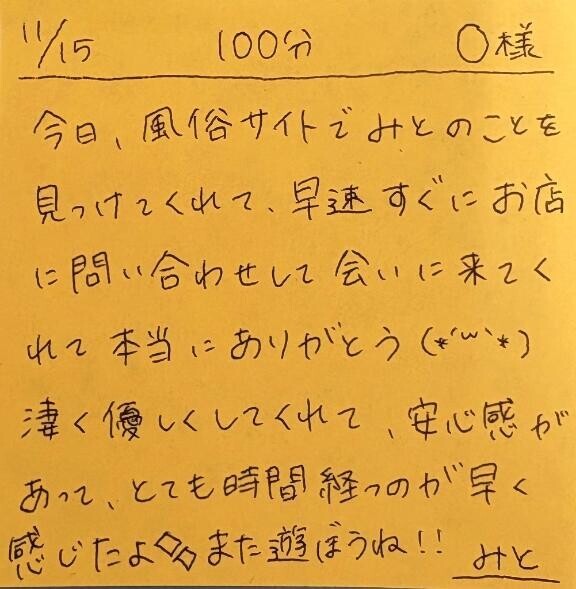 11/15 100分 〇様
今日、風俗サイトでみとのことを
見つけてくれて、早速すぐにお店
に問い合わせして会いに来てく
れて本当にありがとう(*´ω`*)
凄く優しくしてくれて、安心感が
あって、とても時間経つのが早く
感じたよ◇◇また遊ぼうね!! みと